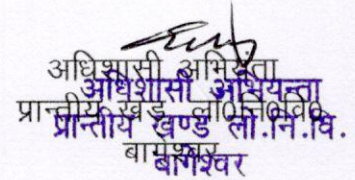 अधिशासी अभियंता
अधिशासी अभियन्ता
प्रान्तीय खंड लो०नि०वि०
प्रान्तीय खण्ड लो.नि.वि.
बागेश्वर
बागेश्वर